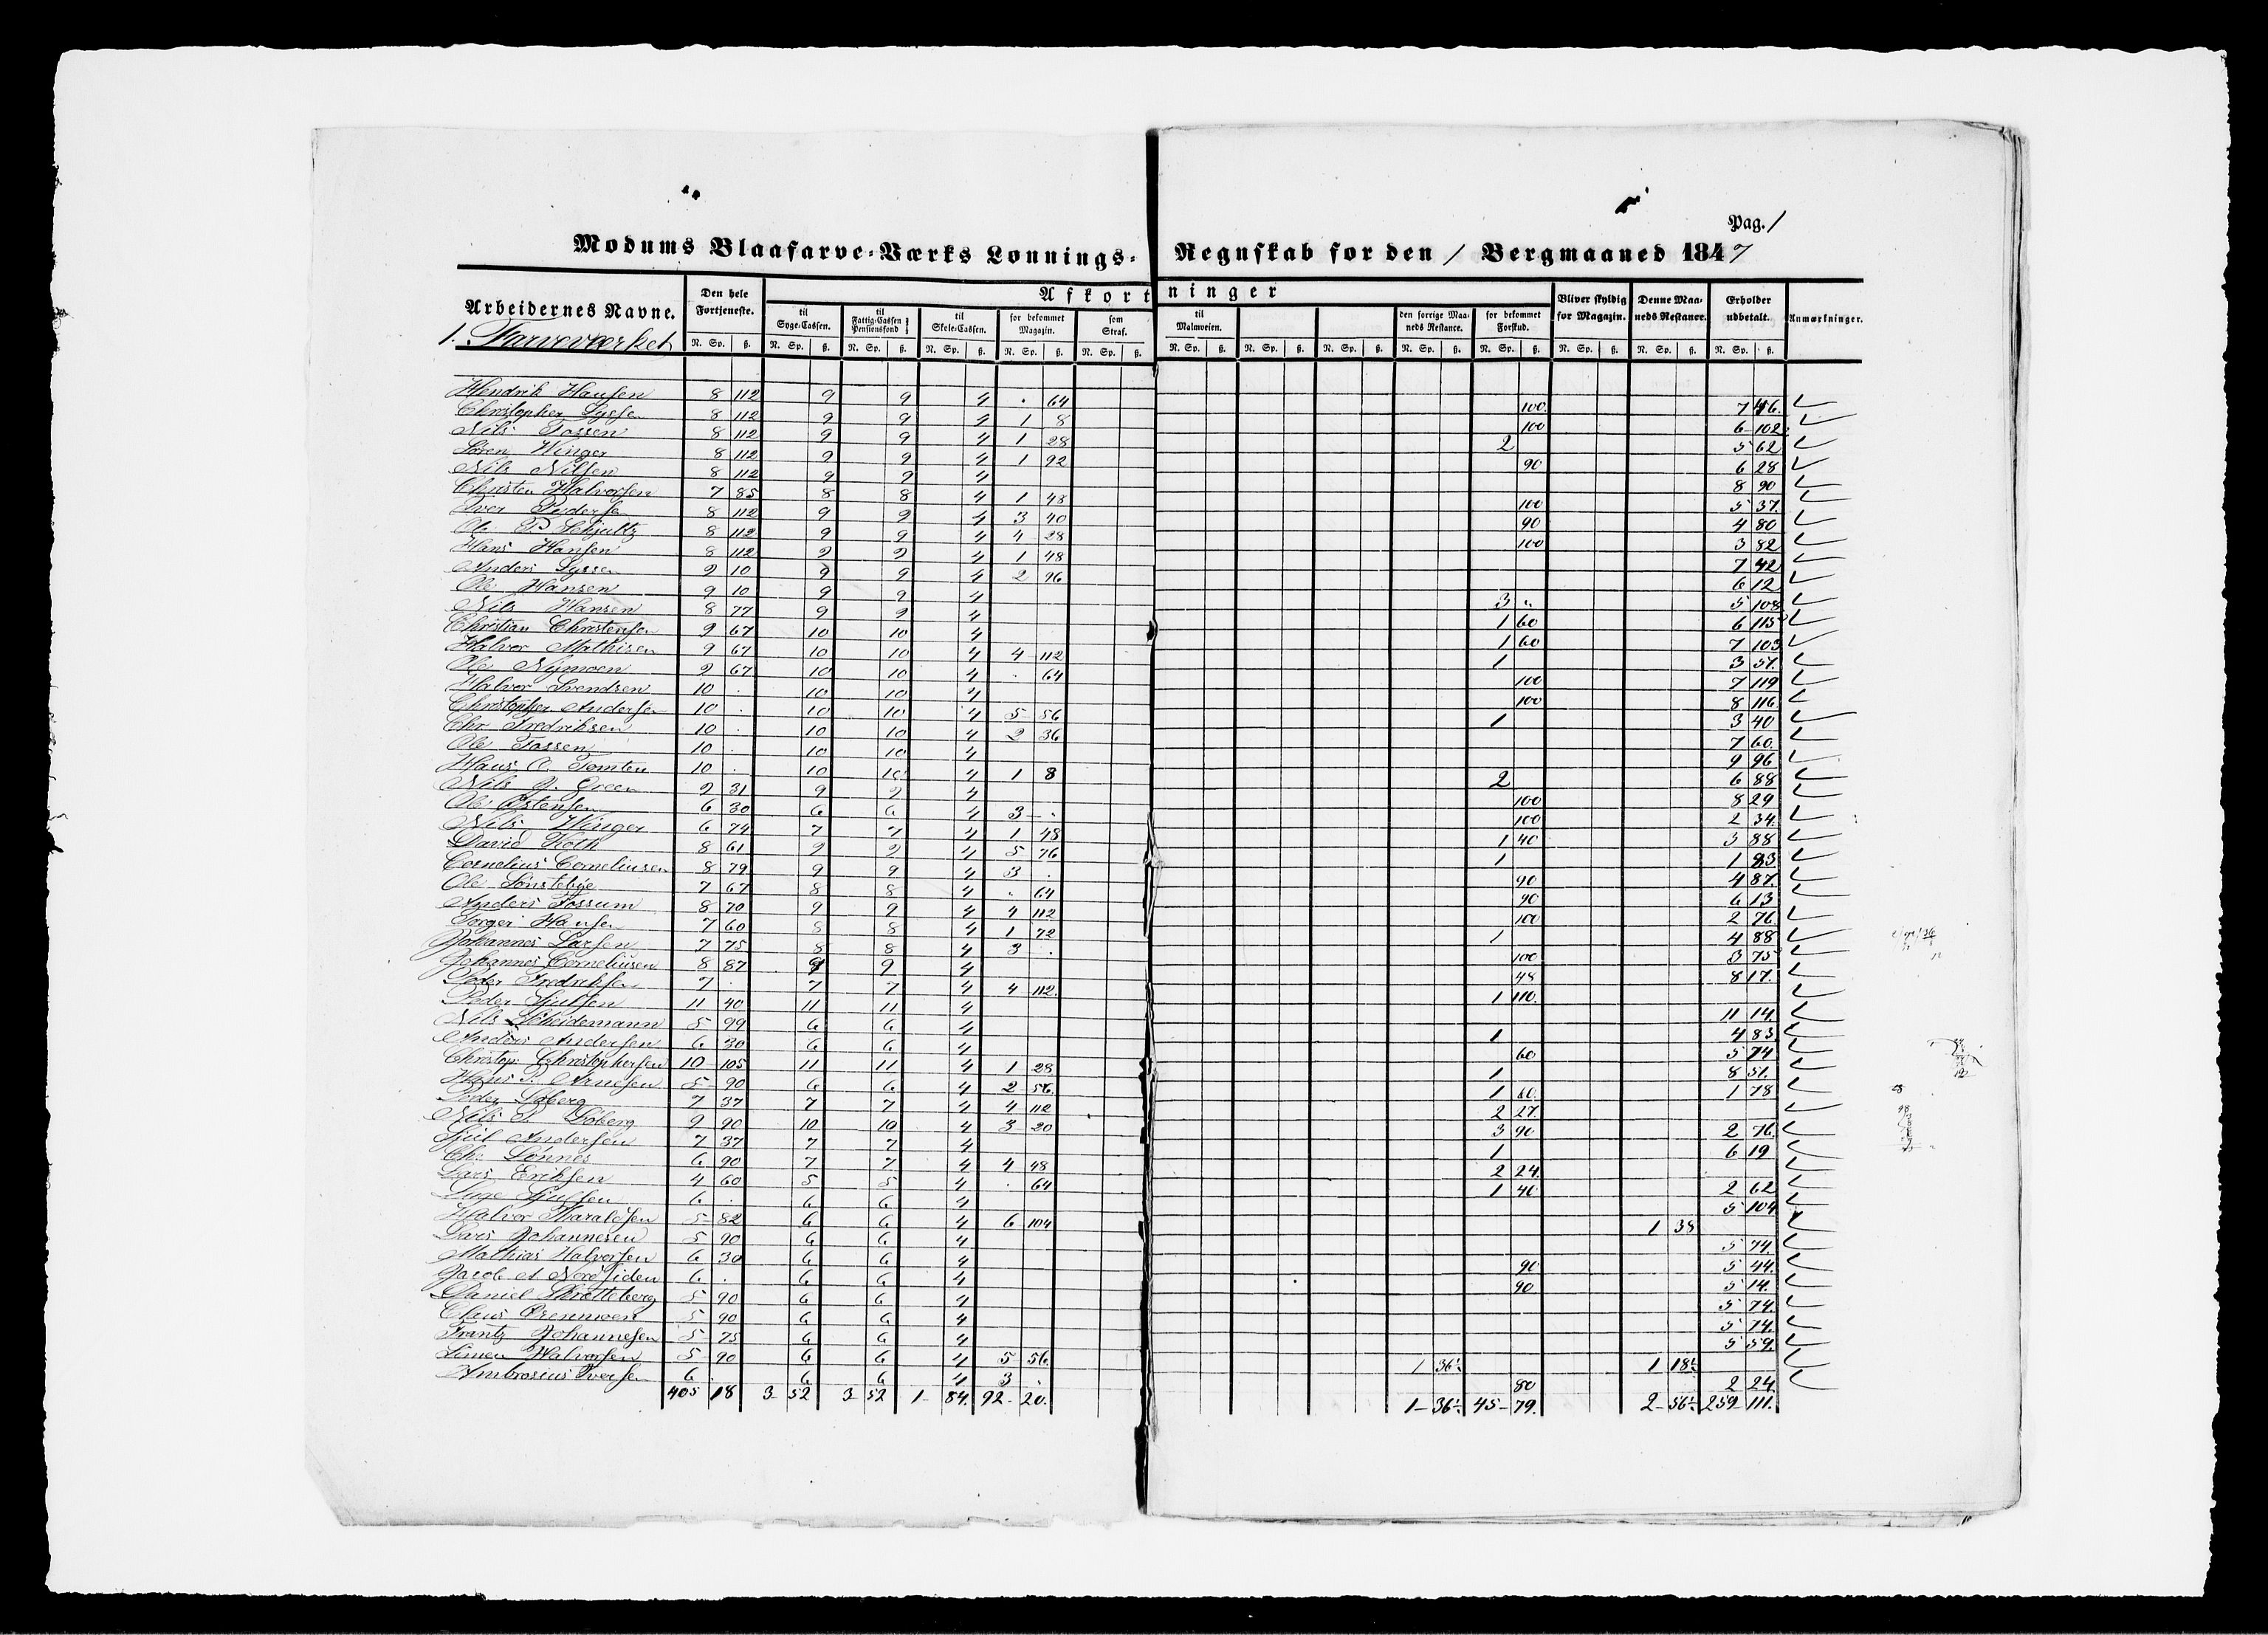 Pag. 1
Modums Blaafarve-Værks Lønnings- Regnskab for den 1 Bergmaaned 1847
Arbeidernes Navne. Den hele Fortjeneste. Afkortninger Bliver skyldig for Magazin. Denne Maaneds Restance. Erholder udbetalt. Anmærkninger.
til Syge-Cassen. til Fattig-Cassen Pensionsfond til Skole-Cassen. for bekommet Magazin. som Straf. til Malmveien. den forrige Maaneds Restance. for bekommet Forskud.
1. Farveværket N. Sp. ß. N. Sp. ß. N. Sp. ß. N. Sp. ß. N. Sp. ß. N. Sp. ß. N. Sp. ß. N. Sp. ß. N. Sp. ß. N. Sp. ß. N. Sp. ß. N. Sp. ß. N. Sp. ß. N. Sp. ß. N. Sp. ß.
Hendrik Hansen 8 112 9 9 4 . 64 100 7
Christopher 8 112 9 9 4 1 8 100 6 102
Nils Fossen 8 112 9 9 4 1 28 2 5 62
Søren Winger 8 112 9 9 4 1 92 90 6 28
Nils Nilsen 8 112 9 9 4 8 90
Christen Halvorsen 7 85 8 8 4 1 48 100 5 37
Iver Pedersen 8 112 9 9 4 3 40 90 4 80
Ole P. 8 112 9 9 4 4 28 100 3 82
Hans Hansen 8 112 9 9 4 1 48 7 42
Anders 9 10 9 9 4 2 96 6 12
Ole Hansen 9 10 9 9 4 3 " 5 108
Nils Hansen 8 77 9 9 4 1 60 6 115
Christian Christensen 9 67 10 10 4 1 60 7 103
Halvor Mathisen 9 67 10 10 4 4 112 1 3 51
Ole Nymoen 9 67 10 10 4 . 64 100 7 119
Halvor Svendsen 10 . 10 10 4 100 8 116
Christopher Andersen 10 . 10 10 4 5 56 1 3 40
Chr. Fredriksen 10 . 10 10 4 2 36 7 60
Ole Fossen 10 . 10 10 4 9 96
Hans O. Tomten 10 . 10 10 4 1 8 2 6 88
Nils J. Green 9 31 9 9 4 100 8 29
Ole Østensen 6 30 6 6 4 3 . 100 2 34
Nils Winger 6 74 7 7 4 1 48 1 40 3 88
David Koth 8 61 9 9 4 5 76 1 1 83
Cornelius Corneliusen 8 79 9 9 4 3 . 90 4 87
Ole Sønstebye 7 67 8 8 4 . 64 90 6 13
Anders Fossum 8 70 9 9 4 4 112 100 2 76
Torger Hansen 7 60 8 8 4 1 72 1 4 88
Johannes Larsen 7 75 8 8 4 3 . 100 3 75
Johannes Corneliusen 8 87 9 9 4 48 8 17
Peder Fredriksen 7 . 7 7 4 4 112 1 110
Peder 11 40 11 11 4 11 14
Nils Scheidemann 5 99 6 6 4 1 4 83
Anders Andersen 6 30 6 6 4 60 5 74
Christop: Christophersen 10 105 11 11 4 1 28 1 8 51
Hans P. Arnesen 5 90 6 6 4 2 56 1 60 1 78
Peder Foberg 7 37 7 7 4 4 112 2 27
Nils P. Foberg 9 90 10 10 4 3 20 3 90 2 76
Andersen 7 37 7 7 4 1 6 19
Chr. Lønnes 6 90 7 7 4 4 48 2 24
Lars Eriksen 4 60 5 5 4 . 64 1 40 2 62
6 . 6 6 4 5 104
Halvor Haraldsen 5 82 6 6 4 6 104 1 38
Lars Johannesen 5 90 6 6 4 5 74
Mathias Halvorsen 6 30 6 6 4 90 5 44
Jacob Nordsiden 6 . 6 6 4 90 5 14
Daniel Skretteberg 5 90 6 6 4 5 74
Claus Ørenmoen 5 90 6 6 4 5 74
Frantz Johannesen 5 75 6 6 4 5 59
Simen Halvorsen 5 90 6 6 4 5 56 1 36½ 1 18½
Ambrosius Iversen 6 . 6 6 4 3 . 80 2 24
405 18 3 52 3 52 1 84 92 20 1 36½ 45 79 2 56½ 259 111